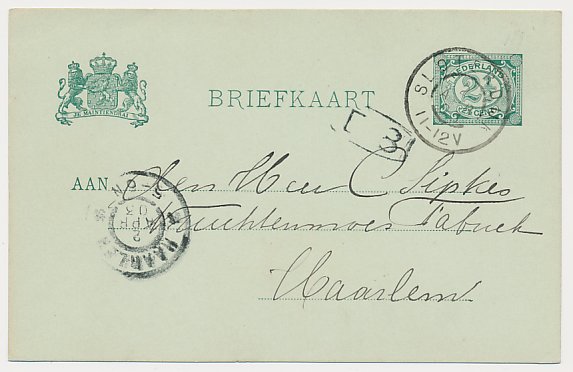 JE MAINTIENDRAI
NEDERLAND
2½
CENT
BRIEFKAART
11-12V
AAN
den Heer C Sipkes
Vruchtenmoes Fabriek
Haarlem
HAARLEM
2
APR
03